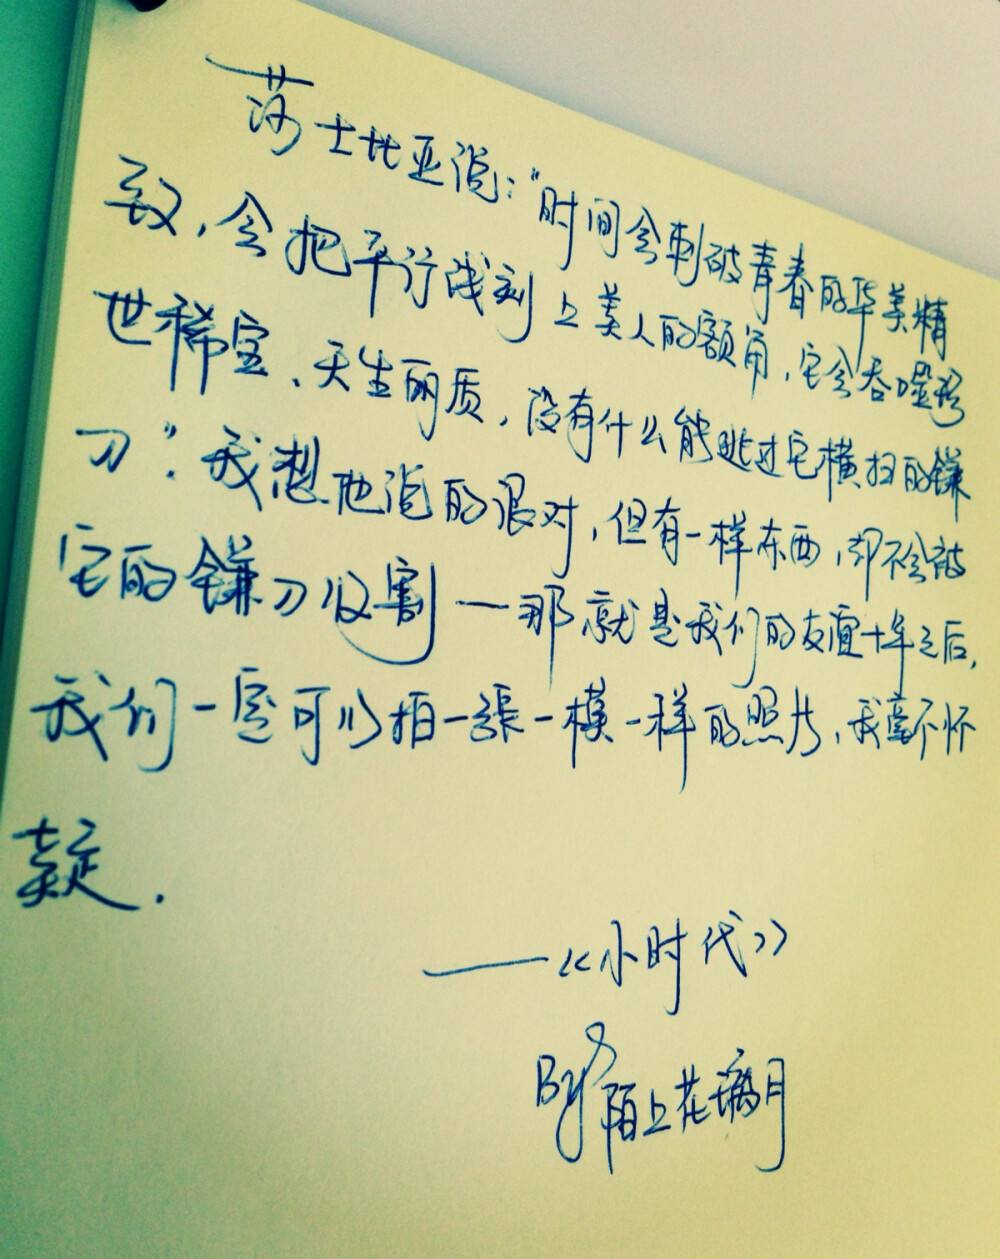 莎士比亚说:“时间会刺破青春的华美精
致,会把平行线刻上美人的额角,它会吞噬稀
世稀宝、天生丽质,没有什么能逃过它横扫的镰
刀”.我想他说的很对,但有一样东西,却不会被
它的镰刀收割——那就是我们的友谊十年之后,
我们一定可以拍一張一模一样的照片,我毫不怀
疑.
——《小时代》
By 陌上花璃月